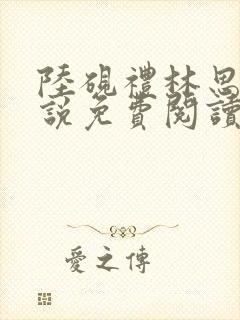 陸硯禮林思
說免費閱讀
愛之傳